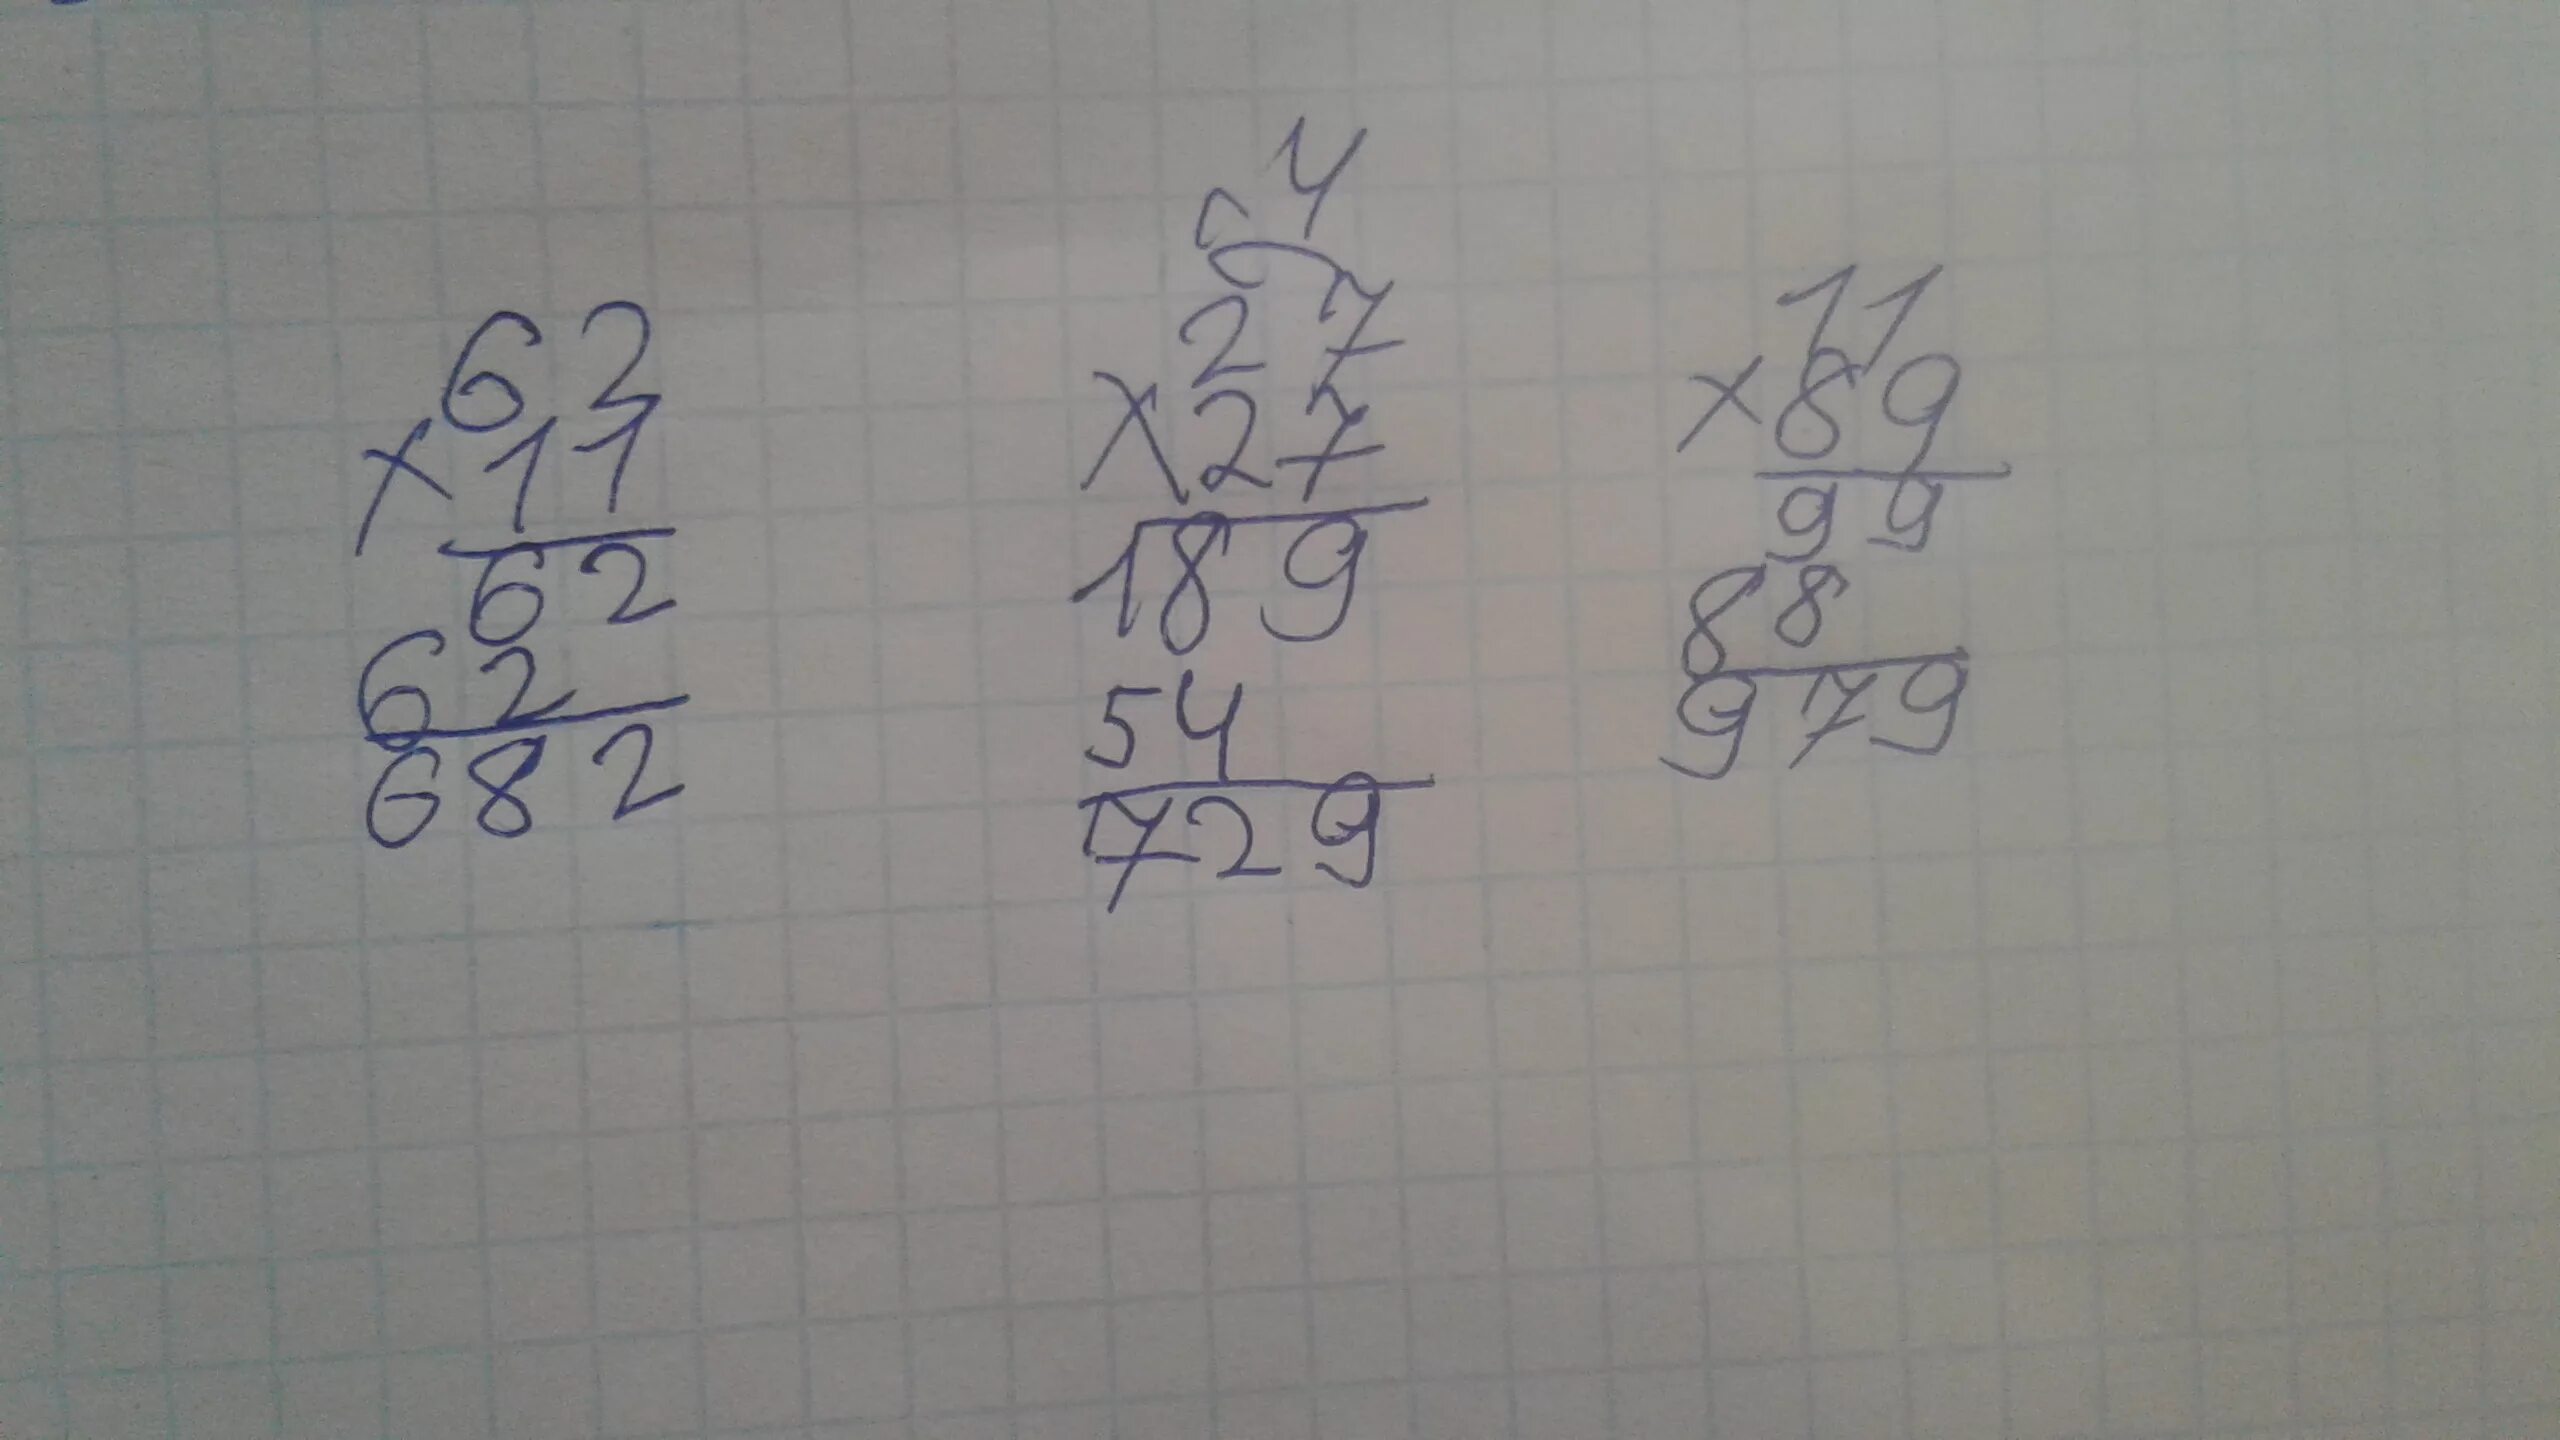 62
×11
62
62
682
4
27
×27
189
54
729
11
×89
99
88
979